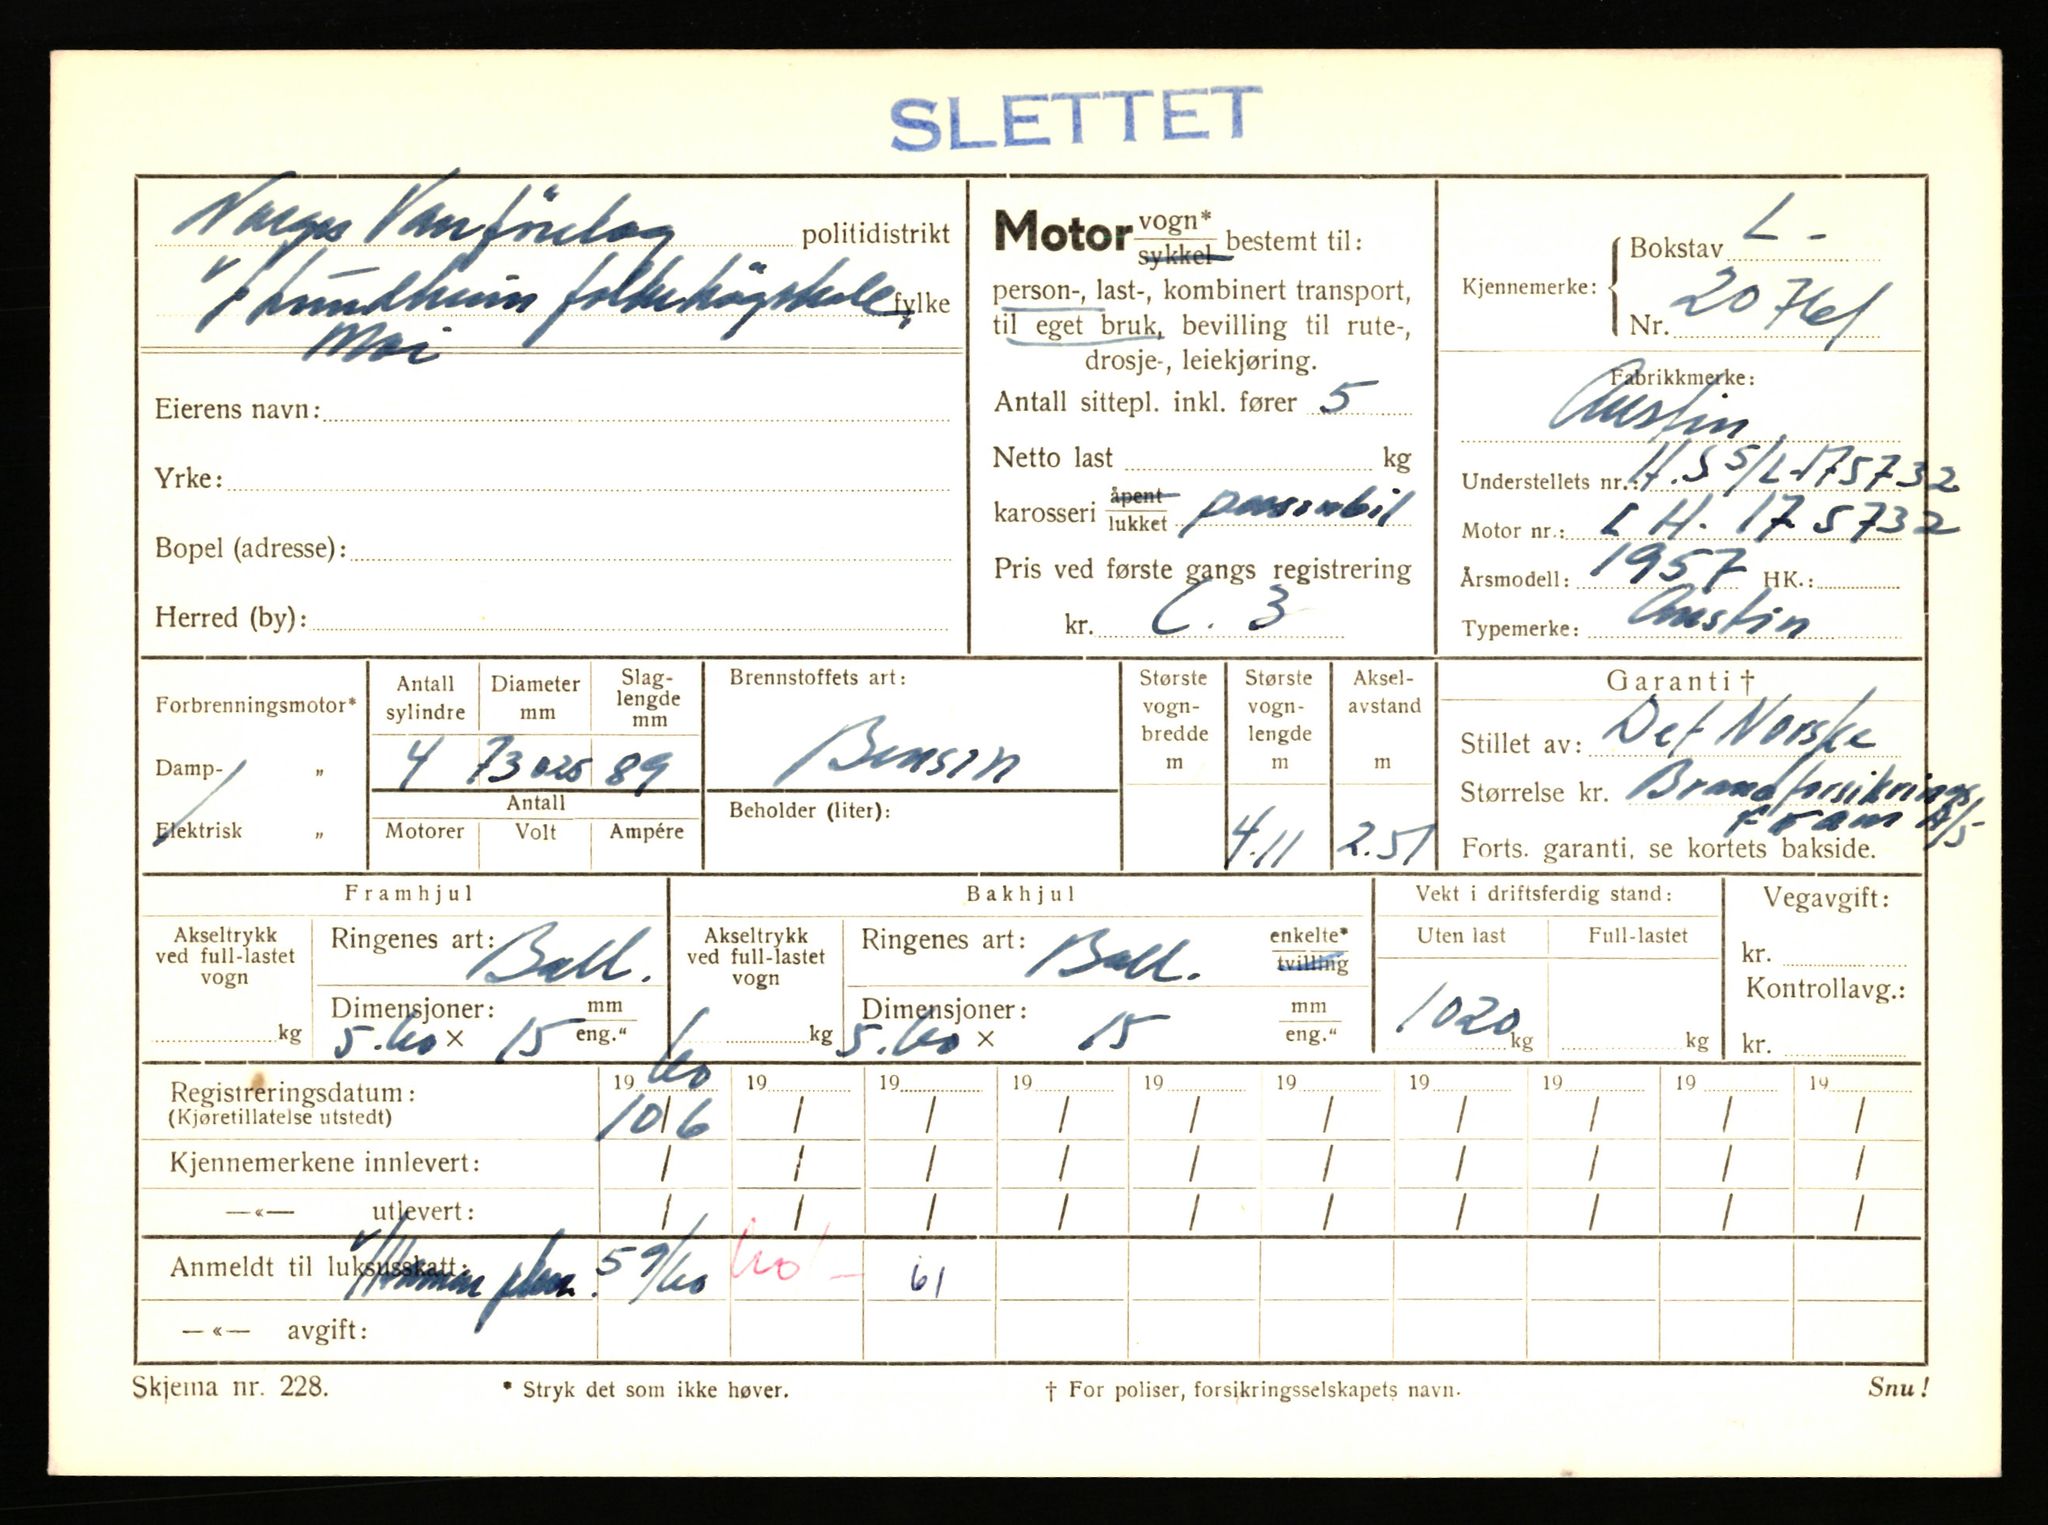 SLETTET
Norges Vanförelag politidistrikt
v/ Lundheim folkehögskole, fylke
Moi
Eierens navn:
Yrke:
Bopel (adresse):
Herred (by):
Motor vogn* sykkel bestemt til:
person-, last-, kombinert transport,
til eget bruk, bevilling til rute-,
drosje-, leiekjøring.
Antall sittepl. inkl. fører 5
Netto last kg
karosseri åpent lukket personbil
Pris ved første gangs registrering
kr. C. 3
Kjennemerke: Bokstav L -
Nr. 20761
Fabrikkmerke:
Austin
Understellets nr.: H.S5/L-175732
Motor nr.: L H. 175732
Årsmodell: 1957 HK.:
Typemerke: Austin
Forbrenningsmotor*
Damp- „
Elektrisk „
Antall sylindre Diameter mm Slag-lengde mm
4 73025 89
Antall
Motorer Volt Ampére
Brennstoffets art:
Bensin
Beholder (liter):
Største vogn-bredde m
Største vogn-lengde m
4.11
Aksel-avstand m
2.51
Garanti †
Stillet av: Det Norske
Størrelse kr. Brandforsikrings
Fram A/S
Forts. garanti, se kortets bakside.
Framhjul
Akseltrykk ved full-lastet vogn
kg
Ringenes art: Ball.
Dimensjoner: mm
5.60 × 15 eng."
Bakhjul
Akseltrykk ved full-lastet vogn
kg
Ringenes art: Ball. enkelte* tvilling
Dimensjoner: mm
5.60 × 15 eng."
Vekt i driftsferdig stand:
Uten last Full-lastet
1020 kg kg
Vegavgift:
kr.
Kontrollavg.:
kr.
Registreringsdatum: 19 60 19 19 19 19 19 19 19 19 19
(Kjøretillatelse utstedt) 10/6 / / / / / / / / /
Kjennemerkene innlevert: / / / / / / / / / /
—«— utlevert: / / / / / / / / / /
Anmeldt til luksusskatt: 59/60 60 - 61
—«— avgift:
Skjema nr. 228. * Stryk det som ikke høver. † For poliser, forsikringsselskapets navn. Snu!